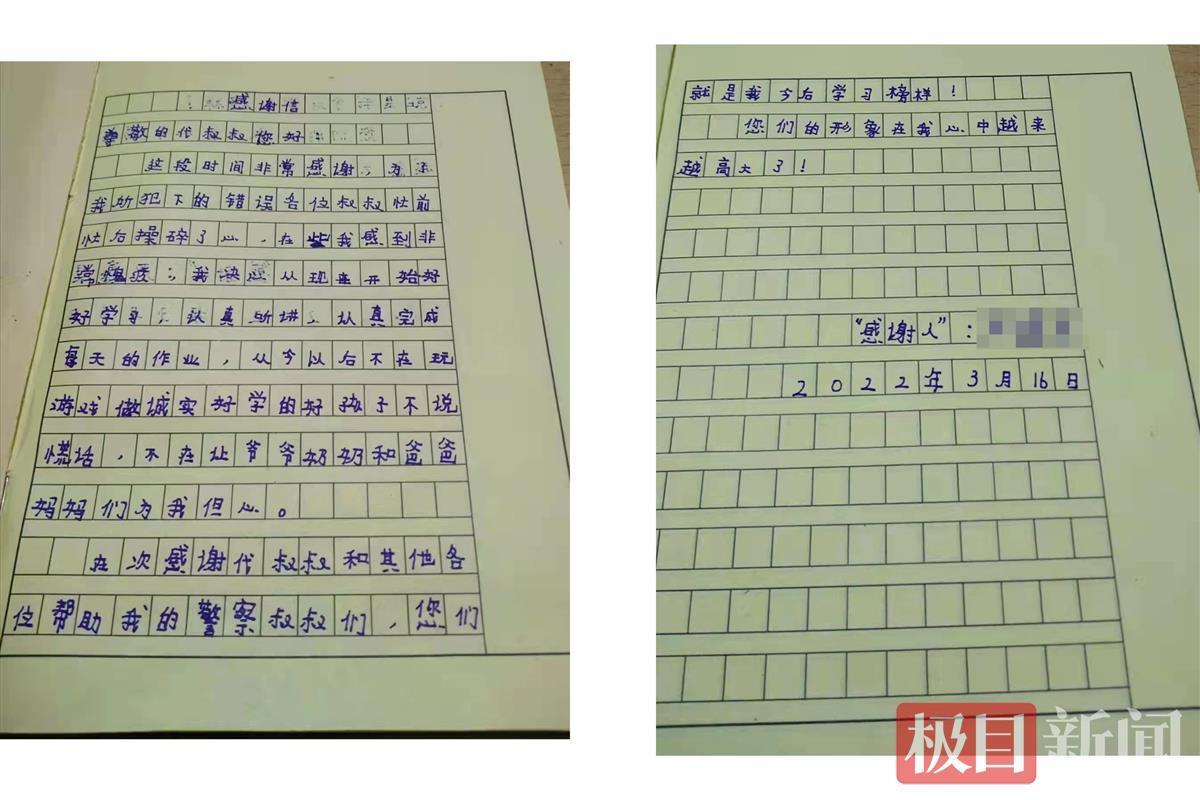 感谢信
尊敬的代叔叔您好！
这段时间非常感谢，为了
我所犯下的错误各位叔叔忙前
忙后操碎了心，在些我感到非
常愧疚；我决定从现在开始好
好学习，认真听讲，认真完成
每天的作业，从今以后不在玩
游戏做诚实好学的好孩子不说
慌话，不在让爷爷奶奶和爸爸
妈妈们为我但心。
在次感谢代叔叔和其他各
位帮助我的警察叔叔们，您们
就是我今后学习榜样！
您们的形象在我心中越来
越高大了！
“感谢人”：
2022年3月16日
极目新闻